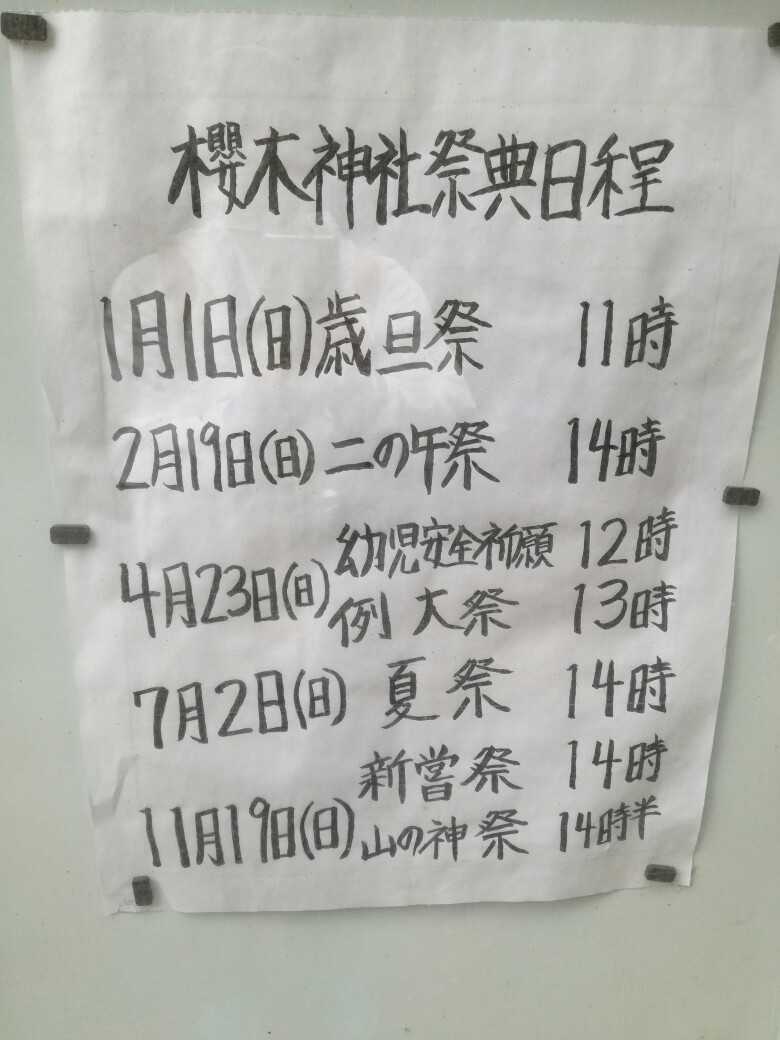 櫻木神社祭典日程
1月1日(日)歳旦祭 11時
2月19日(日)二の午祭 14時
幼児安全祈願 12時
4月23日(日)
例大祭 13時
7月2日(日) 夏祭 14時
新嘗祭 14時
11月19日(日)
山の神祭 14時半